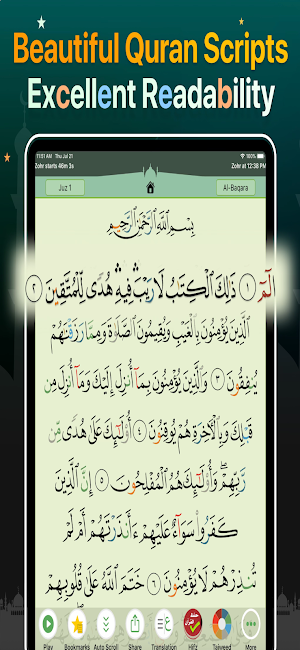 Beautiful Quran Scripts
Excellent Readability
11:51 AM Thu Jul 21
100%
Zohr starts 46m 3s
Zohr at 12:38 PM
Juz 1
Al-Baqara
بِسْمِ اللَّهِ الرَّحْمَٰنِ الرَّحِيمِ
الٓمٓ ۝١ ذَٰلِكَ الْكِتَٰبُ لَا رَيْبَ ۛ فِيهِ ۛ هُدًى لِّلْمُتَّقِينَ ۝٢
الَّذِينَ يُؤْمِنُونَ بِالْغَيْبِ وَيُقِيمُونَ الصَّلَوٰةَ وَمِمَّا رَزَقْنَٰهُمْ
يُنفِقُونَ ۝٣ وَالَّذِينَ يُؤْمِنُونَ بِمَآ أُنزِلَ إِلَيْكَ وَمَآ أُنزِلَ مِن
قَبْلِكَ وَبِالْءَاخِرَةِ هُمْ يُوقِنُونَ ۝٤ أُو۟لَٰٓئِكَ عَلَىٰ هُدًى مِّن
رَّبِّهِمْ ۖ وَأُو۟لَٰٓئِكَ هُمُ الْمُفْلِحُونَ ۝٥ إِنَّ الَّذِينَ
كَفَرُوا۟ سَوَآءٌ عَلَيْهِمْ ءَأَنذَرْتَهُمْ أَمْ لَمْ
تُنذِرْهُمْ لَا يُؤْمِنُونَ ۝٦ خَتَمَ اللَّهُ عَلَىٰ قُلُوبِهِمْ
Play
Bookmarks
Auto Scroll
Share
Translation
Hifz
Tajweed
More